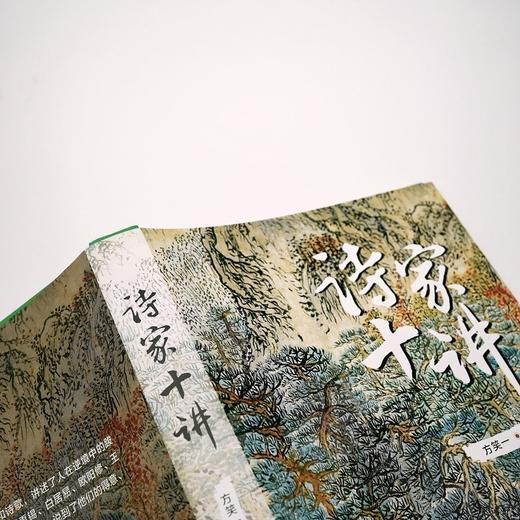 诗家
十讲
方笑一
诗家十讲
方笑
和诗歌，讲述了人在逆境中的晙
禹锡、白居易、欧阳修、王
说到了他们的得意、